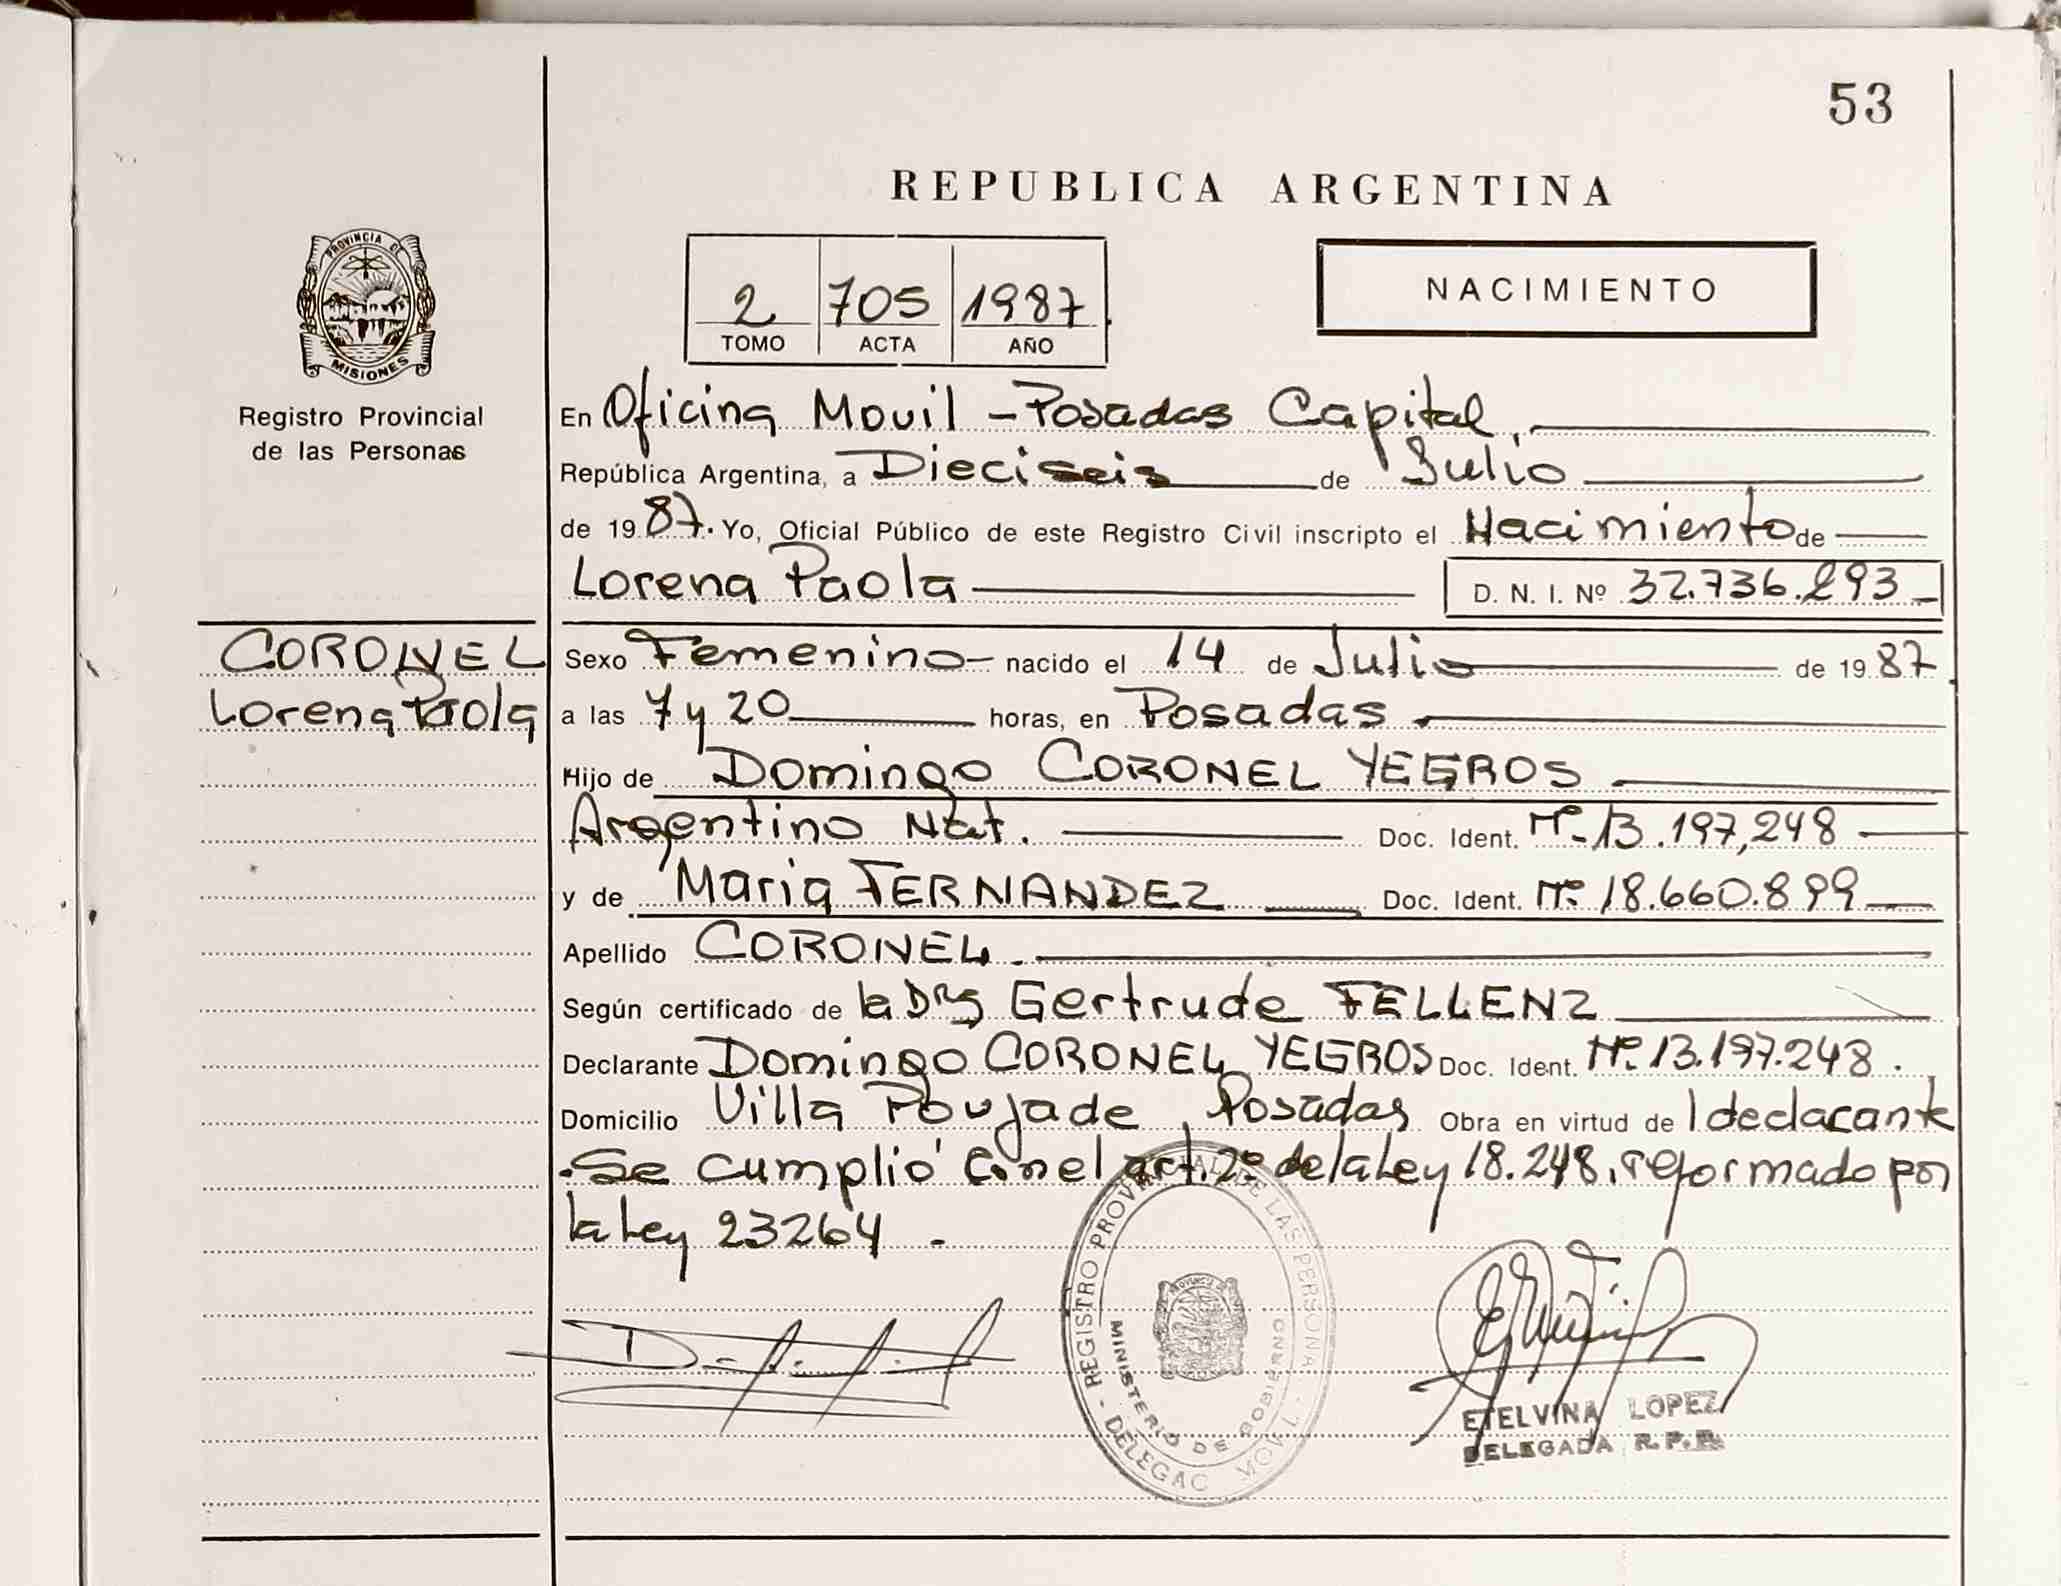 53
REPUBLICA ARGENTINA
PROVINCIA DE
MISIONES
Registro Provincial
de las Personas
2 705 1987
TOMO ACTA AÑO
NACIMIENTO
En Oficina Movil - Posadas Capital,
República Argentina, a Dieciseis de Julio
de 1987. Yo, Oficial Público de este Registro Civil inscripto el Nacimiento de
Lorena Paola D. N. I. Nº 32.736.293
CORONEL
Lorena Paola
Sexo Femenino nacido el 14 de Julio de 1987
a las 7 y 20 horas, en Posadas.
Hijo de Domingo CORONEL YEGROS
Argentino Nat. Doc. Ident. Nº 13.197,248
y de Maria FERNANDEZ Doc. Ident. Nº 18.660.899
Apellido CORONEL.
Según certificado de la Dra Gertrude FELLENZ
Declarante Domingo CORONEL YEGROS Doc. Ident. Nº 13.197.248.
Domicilio Villa Poujade, Posadas Obra en virtud de l declarante
.Se cumplió con el art. 2º de la Ley 18.248, reformado por
la Ley 23264.
REGISTRO PROVINCIAL DE LAS PERSONAS
MINISTERIO DE GOBIERNO
DELEGAC MOVIL
ETELVINA LOPEZ
DELEGADA R.P.P.